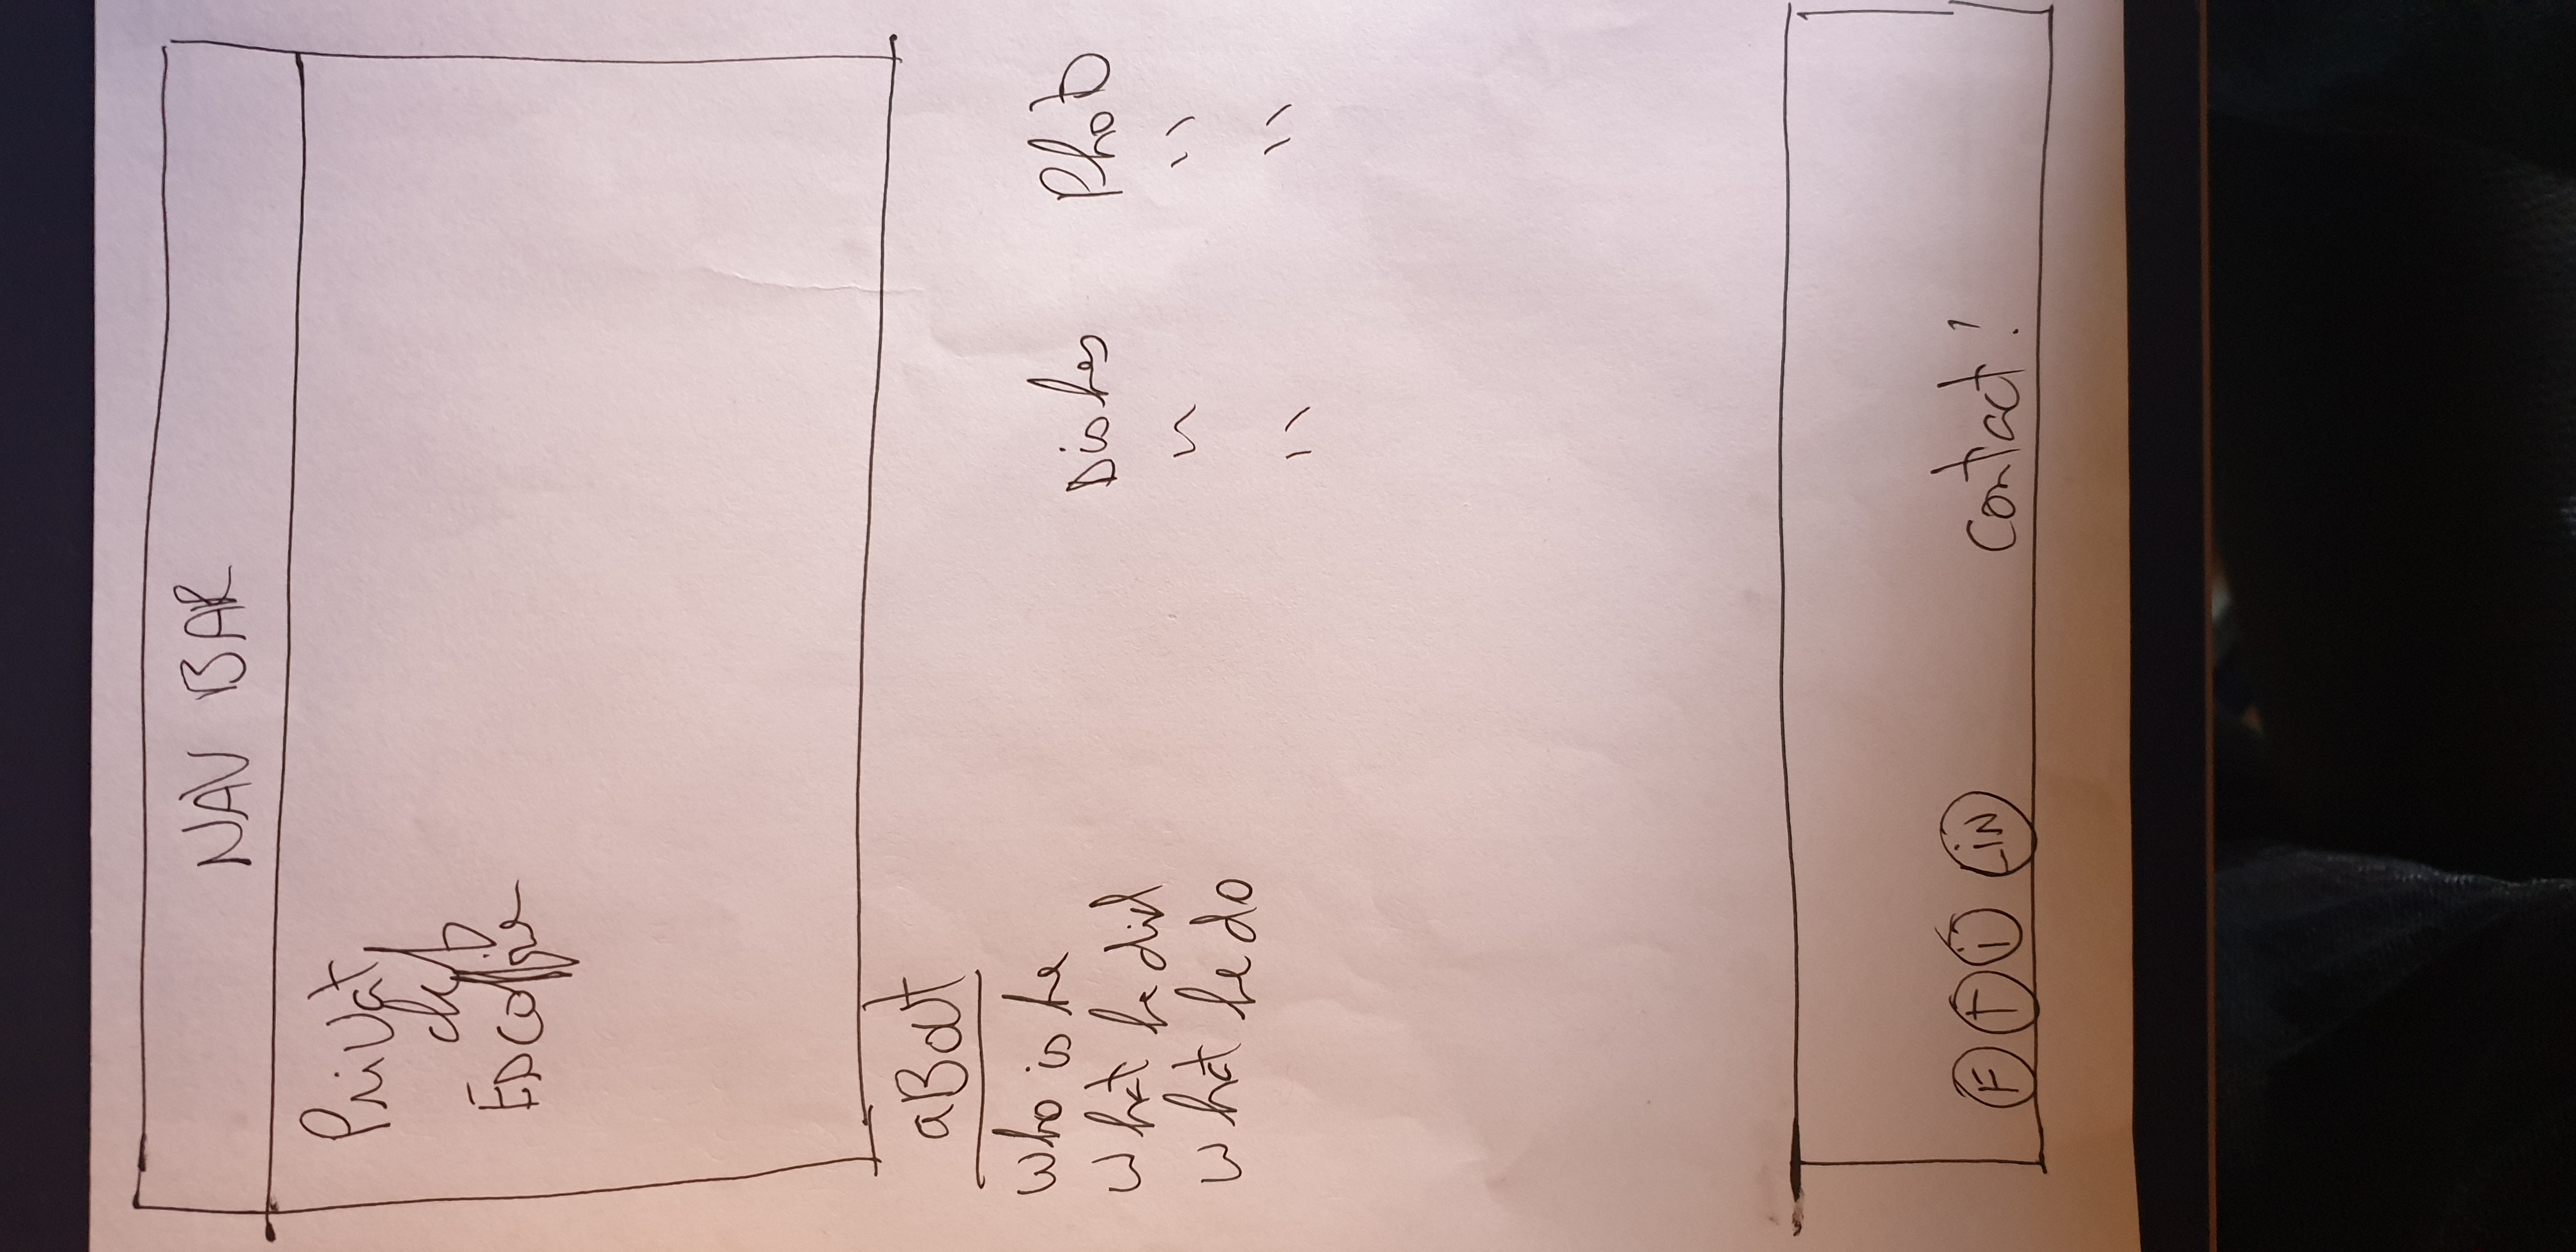 NAV BAR
Privat
chef
Escoffie
aBout
Who is he
What he did
What he do
Dishes Photo
" "
" "
F T i LiN
contact!